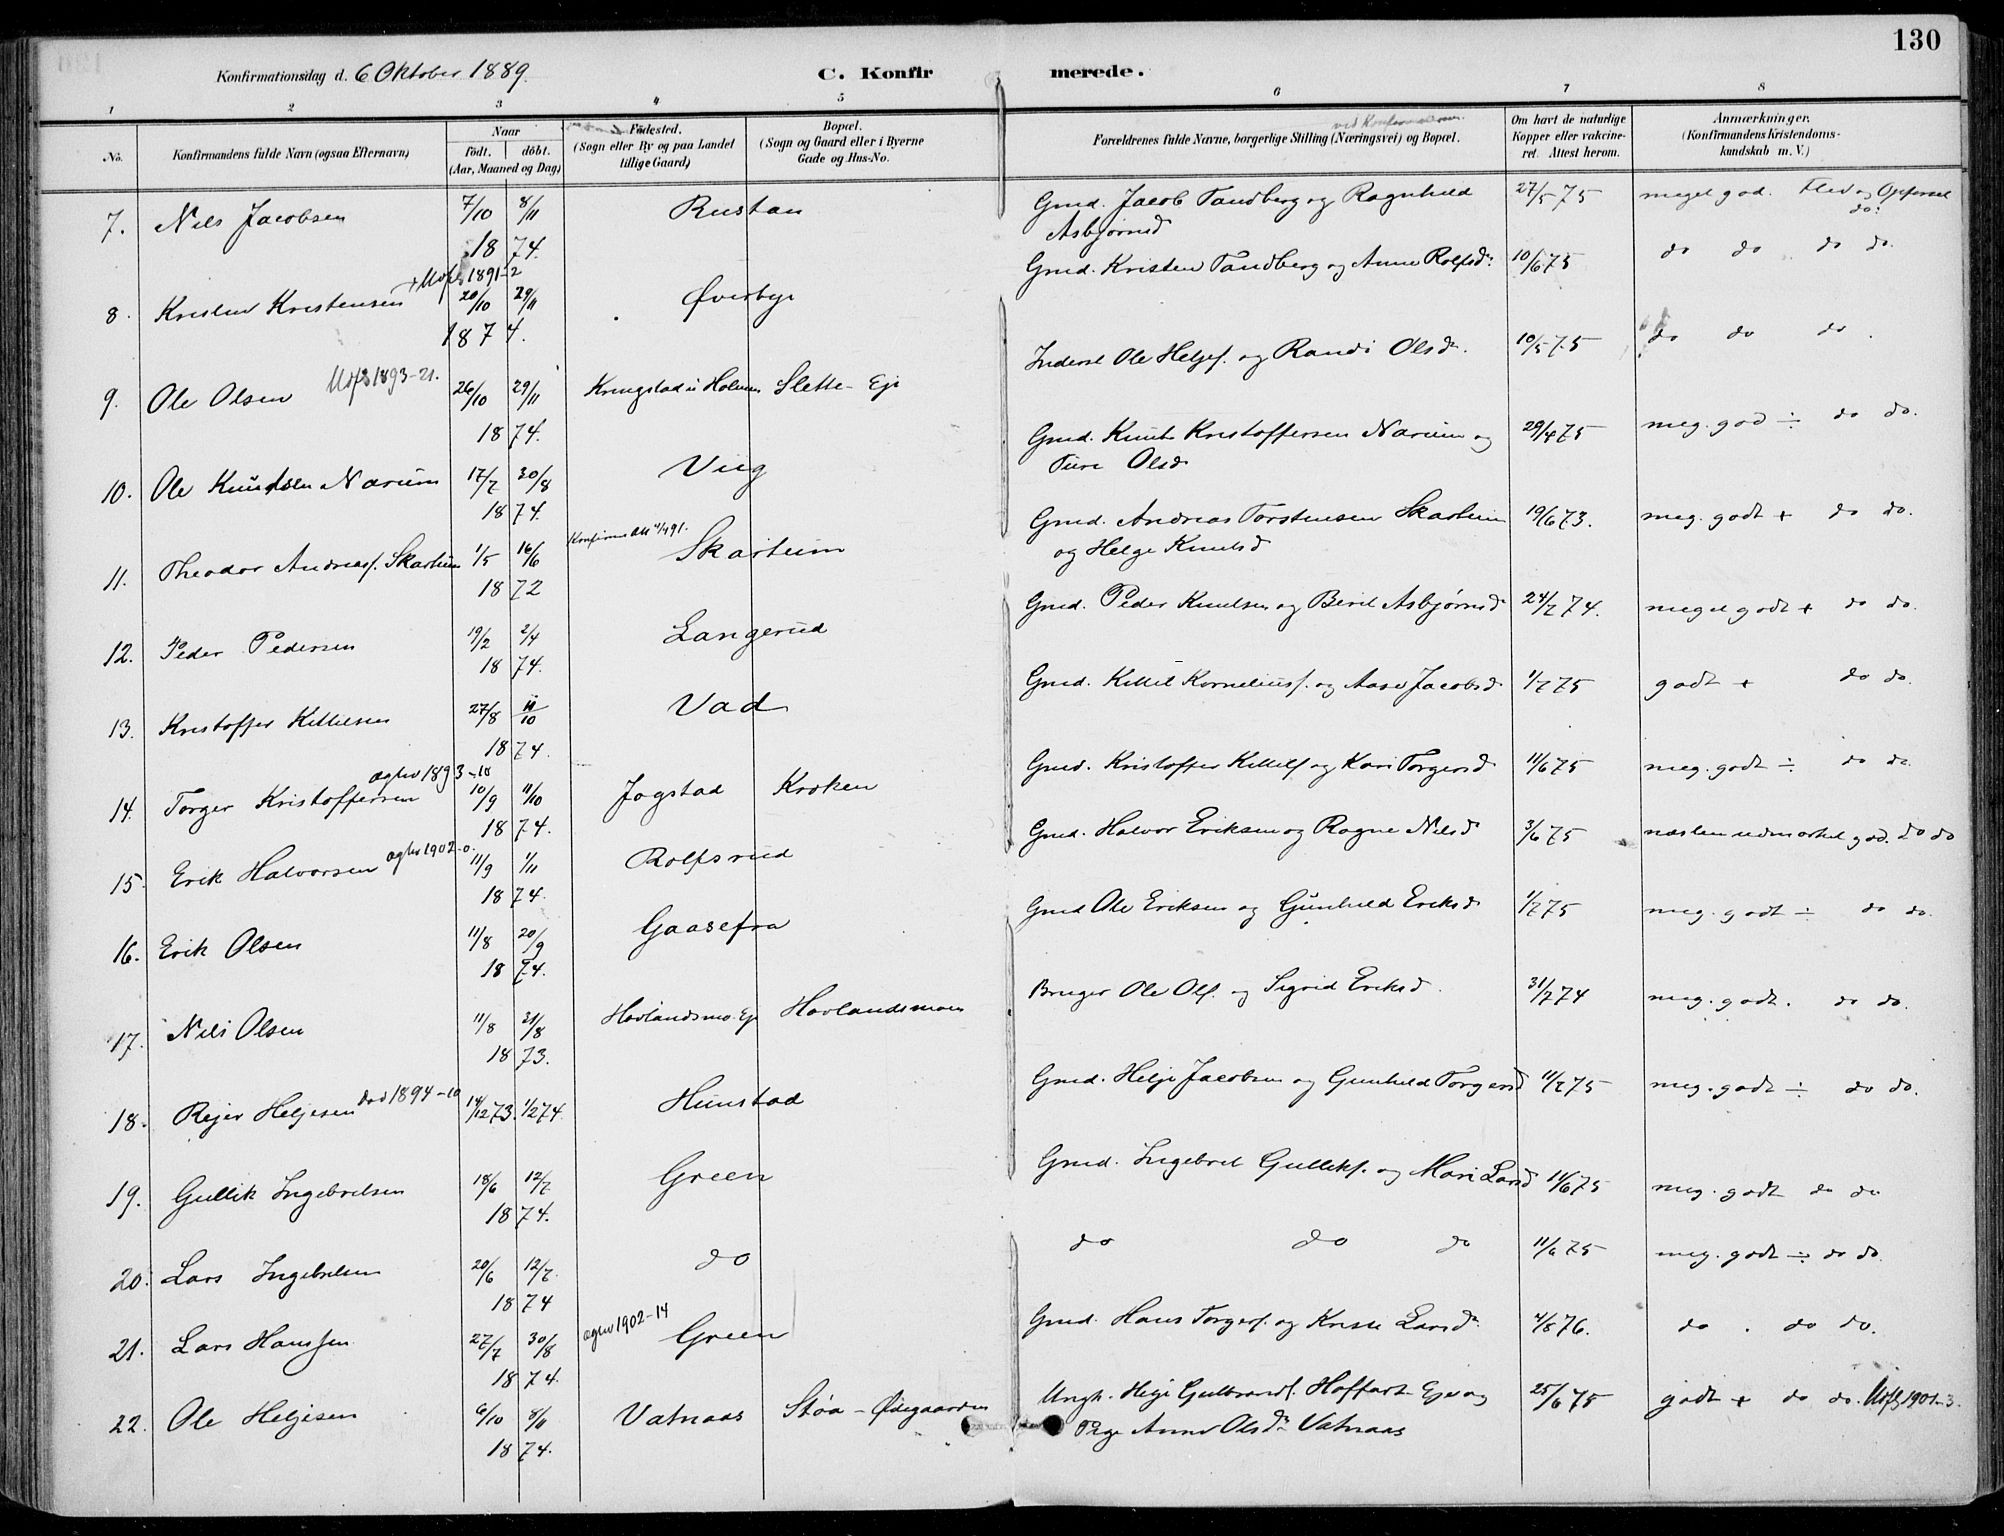 130
Konfirmationsdag d. 6 Oktober 1889.
C. Konfirmerede.
1 2 3 4 5 6 7 8
No.
Konfirmandens fulde Navn (ogsaa Efternavn)
Naar
Födt. döbt.
(Aar, Maaned og Dag)
Födested.
(Sogn eller By og paa Landet
tillige Gaard)
Bopæl.
(Sogn og Gaard eller i Byerne
Gade og Hus-No.
Forældrenes fulde Navne, borgerlige Stilling (Næringsvei) og Bopæl.
Om havt de naturlige
Kopper eller vakcine-
ret. Attest herom.
Anmærkninger.
(Konfirmandens Kristendoms-
kundskab m. V.)
7. Nils Jacobsen 7/10 8/11 Rustan Gmd. Jacob Tandberg og Ragnhild 27/5 75 meget god. Flid og Opførsel
1874. Asbjørnsd do:
+ Udfl 1891-2
8. Kristen Kristensen 20/10 29/11 Øverbye Gmd. Kristen Tandberg og Anne Rolfsd: 10/6 75 do do do do.
1874.
9. Ole Olsen Udfl 1893-21. 26/10 29/11 Kringstad i Holmen Slette-Eje Inderst Ole Heljes. og Randi Olsd. 10/5 75 do do do.
1874.
10. Ole Knudsen Narum 17/7 30/8 Viig Gmd. Knut Kristoffersen Narum og 29/4 75 meg. god ÷ do do.
1874. Ture Olsd.
11. Theodor Andreas. Skartum 1/5 16/6 Skartum Gmd. Andreas Torstensen Skartum 19/6 73. meg. godt + do do.
1872 og Helge Knutsd
12. Peder Pedersen 19/2 2/4 Langerud Gmd. Peder Knutsen og Berit Asbjørnsd 24/7 74. meget godt + do do.
1874.
13. Kristoffer Kittilsen 27/8 11/10 Vad Gmd. Kittil Kornelius. og Aase Jacobsd. 1/7 75 godt + do do.
1874.
agtev 1893-18
14. Torger Kristoffersen 10/9 11/10 Jogstad Kroken Gmd. Kristoffer Kittils. og Kari Torgersd. 11/6 75 meg. godt ÷ do do.
1874.
15. Erik Halvorsen agtev 1902-0. 11/9 1/11 Rolfsrud Gmd. Halvor Eriksen og Ragne Nilsd 3/6 75 næsten udmærket god. do do
1874.
16. Erik Olsen 11/8 20/9 Gaasefra Gmd Ole Eriksen og Gunhild Eriksd. 1/7 75 meg. godt ÷ do do.
1874.
17. Nils Olsen 11/8 31/8 Hovlandsmo Eje Hovlandsmoen Bruger Ole Ols. og Sigrid Eriksd. 31/7 74 meg. godt. do do.
1873.
18. Rejer Heljesen dod 1894-10 14/12 73. 1/2 74. Hunstad Gmd. Helje Jacobsen og Gunhild Torgersd 11/7 75 meg. godt ÷ do do.
19. Gullik Ingebretsen 18/6 12/7 Green Gmd. Ingebret Gulliks. og Mari Larsd 11/6 75 meg. godt do do
1874.
20. Lars Ingebretsen 20/6 12/7. do do do do 11/6 75 meg. godt ÷ do do.
1874
agtev 1902-14
21. Lars Hanssen 27/7 30/8 Green Gmd. Hans Torgers. og Kristi Larsd. 4/8 76. do . do do.
1874.
22. Ole Heljesen 6/10 8/11 Vatnaas Støa-Ødegaarden Ungk. Helje Gulbrands. Hoffart Eje og 25/6 75 godt + do do. Udfl 1901-3.
1874. Pige Anne Olsd: Vatnaas